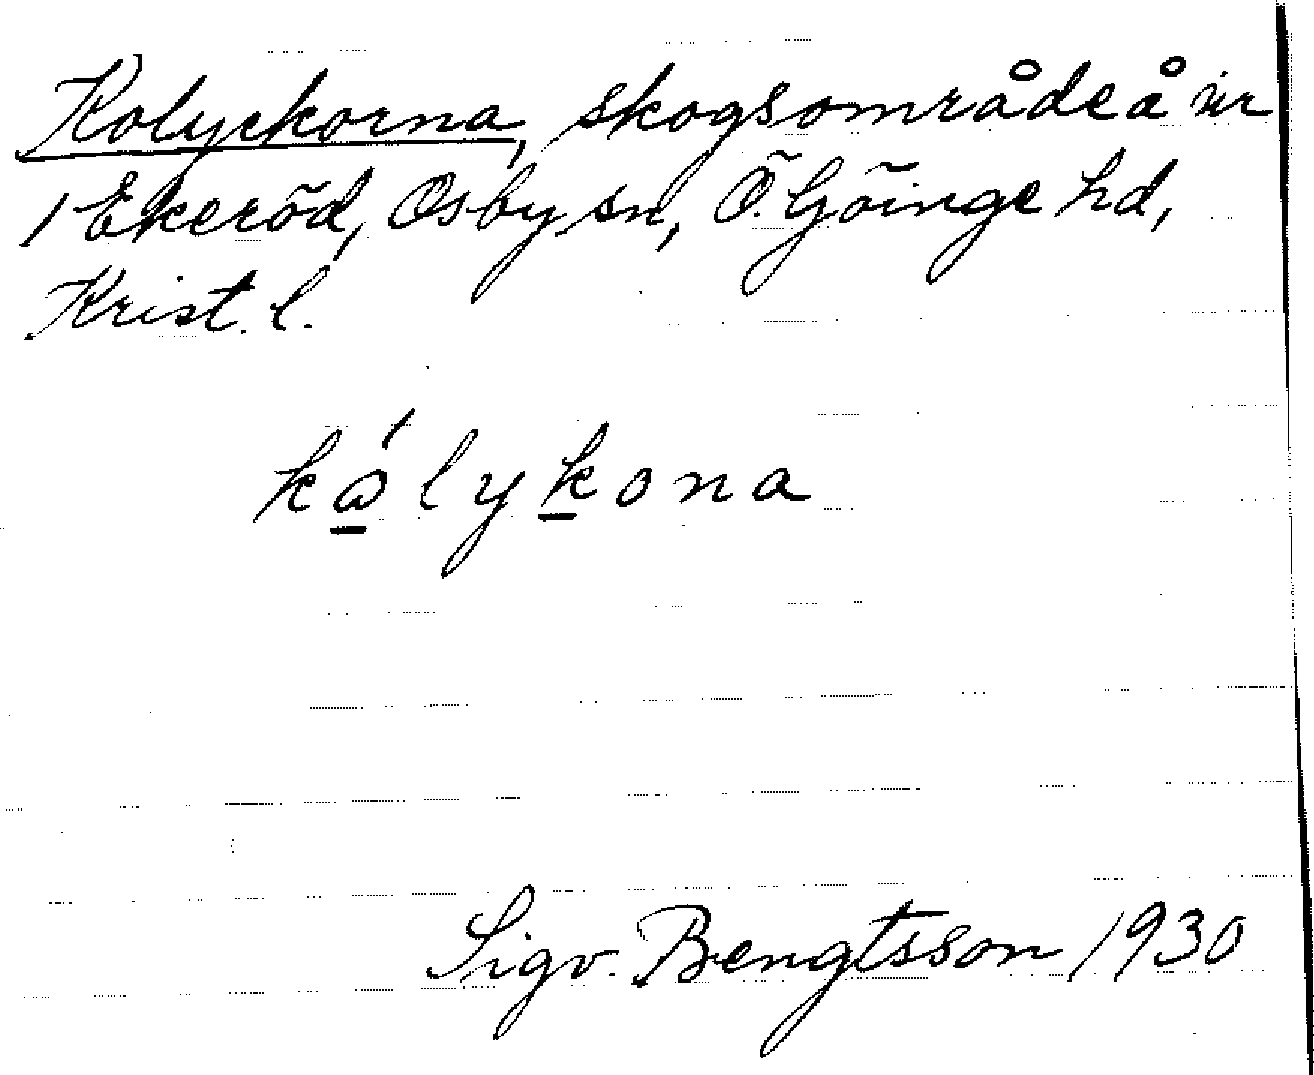 Kolyckorna, skogsområde å nr
1 Ekeröd, Osby sn, Ö. Göinge hd,
Krist. l.
kålykona
Sigv. Bengtsson 1930